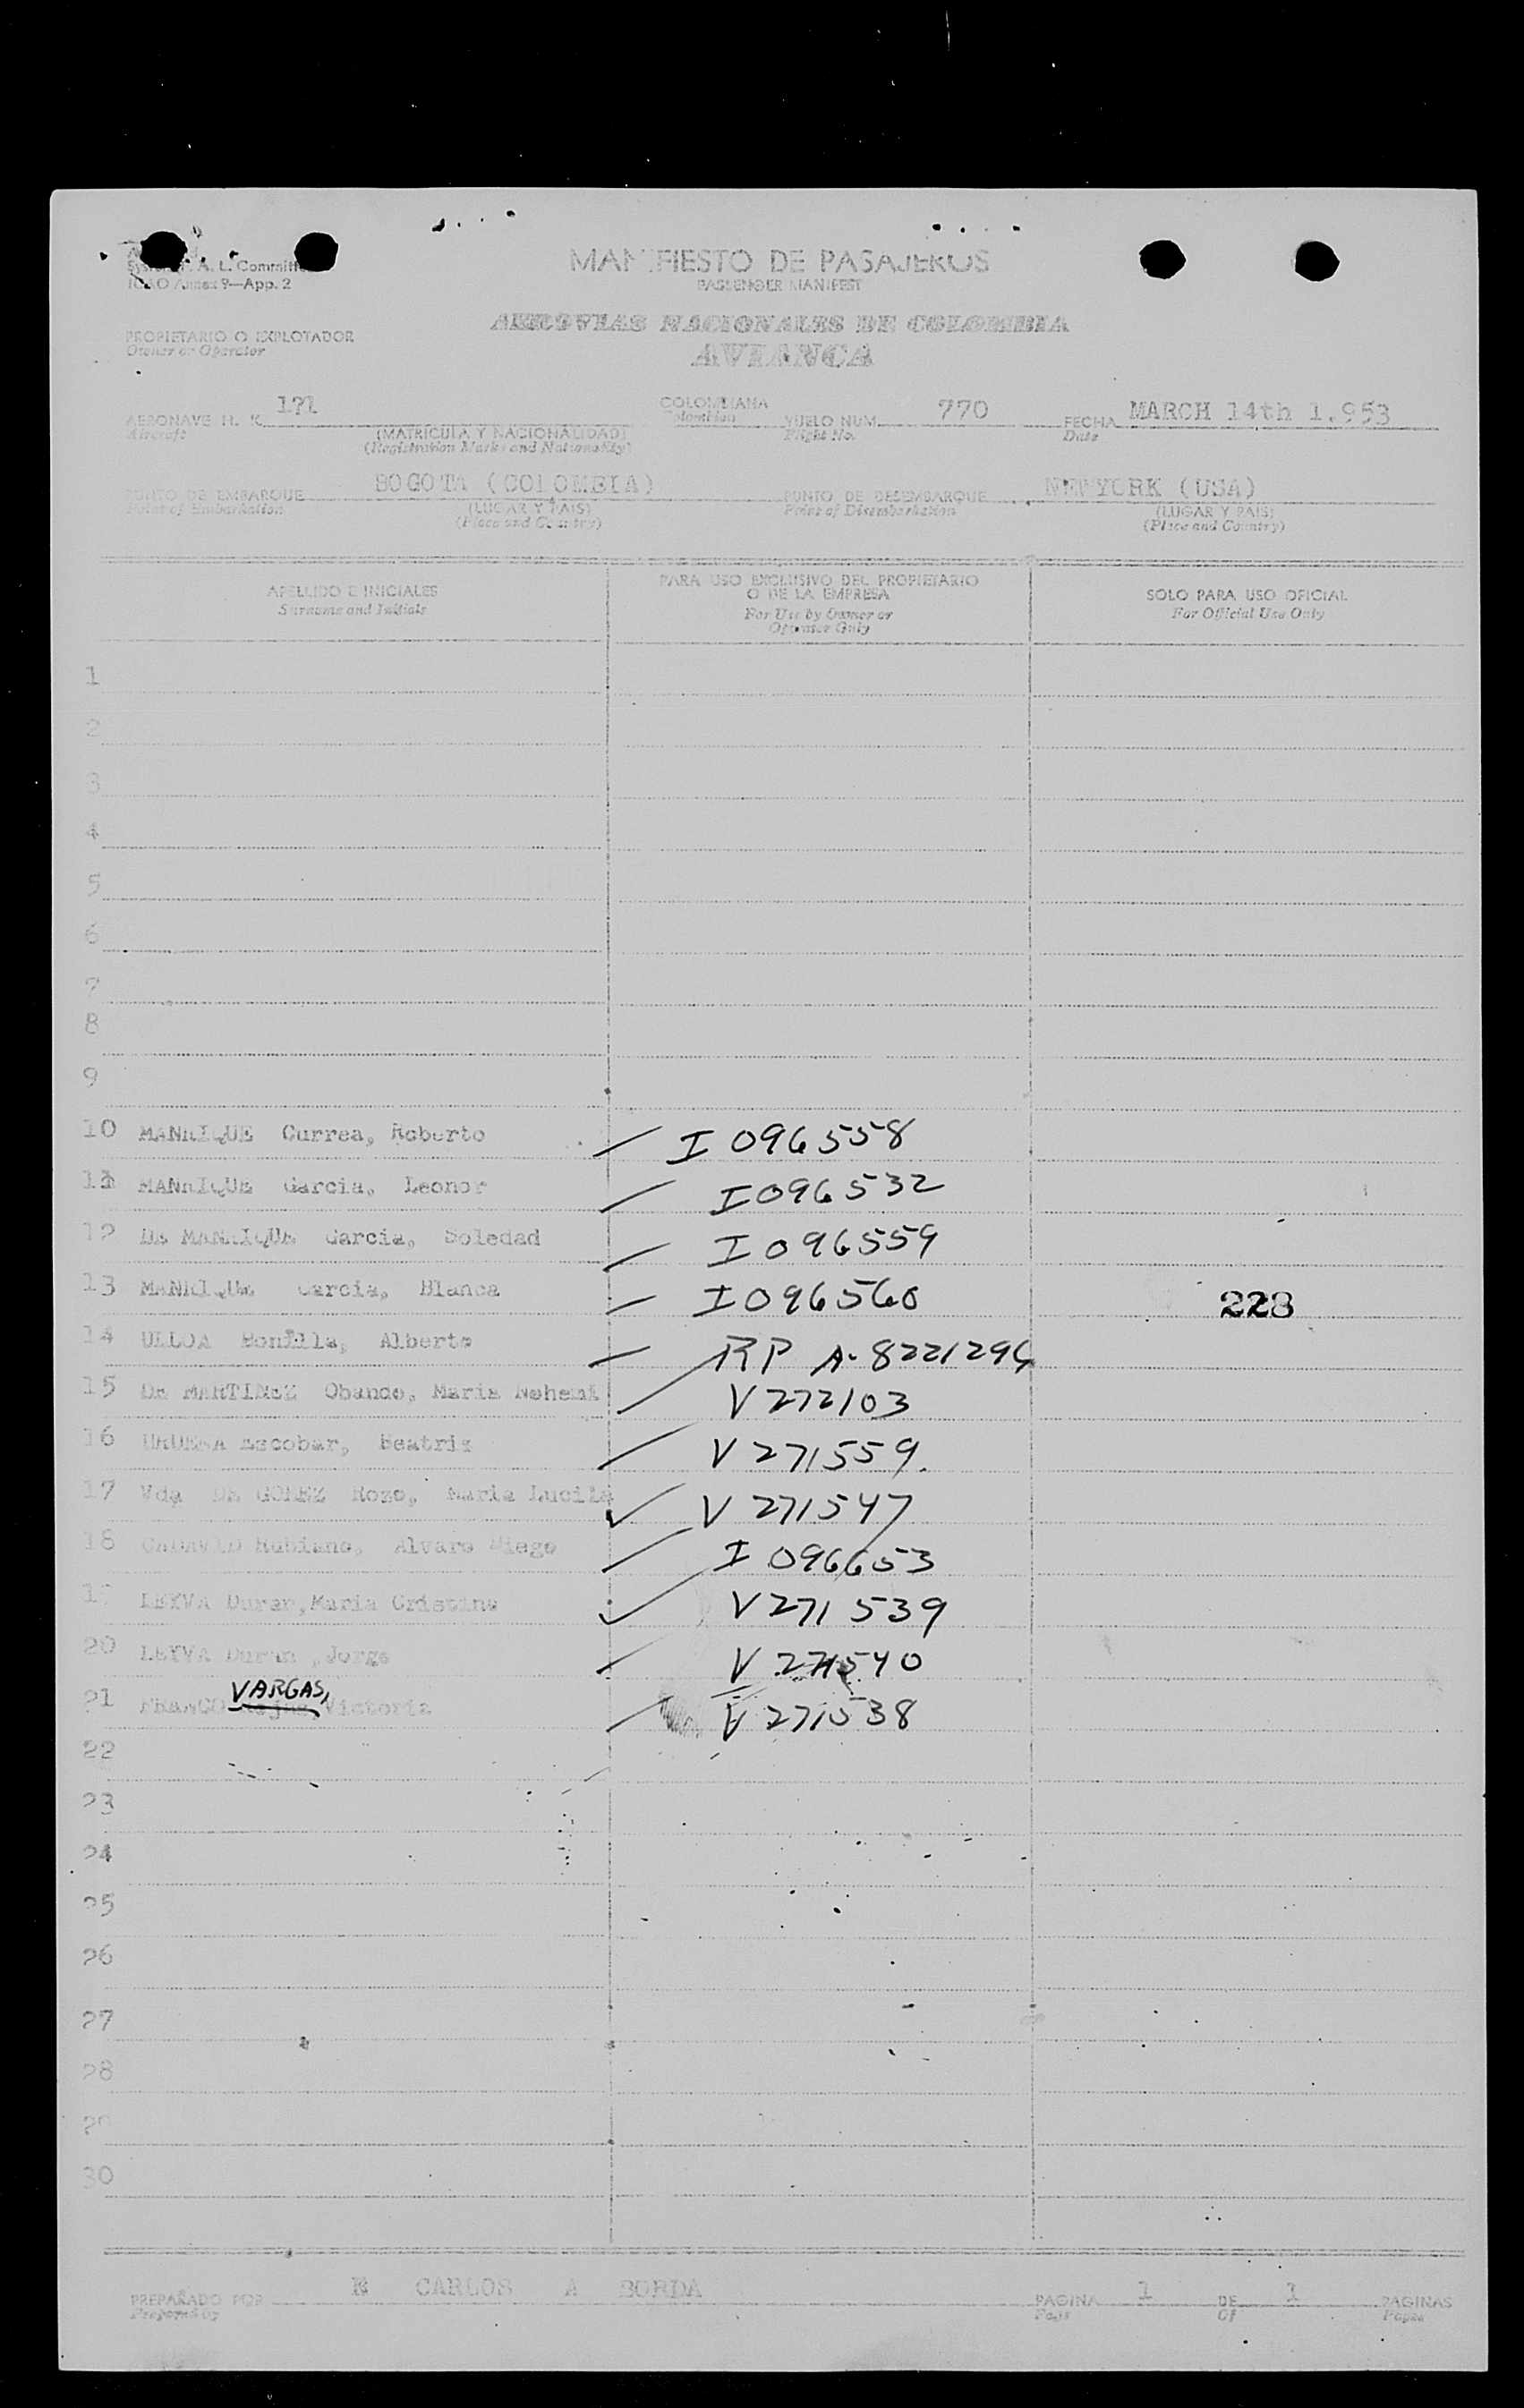 System F. A. L. Committee
ICAO Annex 9—App. 2
MANIFIESTO DE PASAJEROS
PASSENGER MANIFEST
PROPIETARIO O EXPLOTADOR
Owner or Operator
AEROVIAS NACIONALES DE COLOMBIA
AVIANCA
AERONAVE H. K. 171 COLOMBIANA VUELO NUM. 770 FECHA MARCH 14th 1.953
Aircraft (MATRICULA Y NACIONALIDAD) Colombian Flight No. Date
(Registration Marks and Nationality)
PUNTO DE EMBARQUE BOGOTA (COLOMBIA) PUNTO DE DESEMBARQUE NEW YORK (USA)
Point of Embarkation (LUGAR Y PAIS) Point of Disembarkation (LUGAR Y PAIS)
(Place and Country) (Place and Country)
APELLIDO E INICIALES
Surname and Initials
PARA USO EXCLUSIVO DEL PROPIETARIO
O DE LA EMPRESA
For Use by Owner or
Operator Only
SOLO PARA USO OFICIAL
For Official Use Only
1
2
3
4
5
6
7
8
9
10 MANRIQUE Currea, Roberto I 096558
11 MANRIQUE Garcia, Leonor I 096532
12 De MANRIQUE Garcia, Soledad I 096559
13 MANRIQUE Garcia, Blanca I 096560 228
14 ULLOA Bonilla, Alberto RP A-8221296
15 De MARTINEZ Obando, Maria Nohemi V 272103
16 URUEÑA Escobar, Beatriz V 271559.
17 Vda DE GOMEZ Rozo, Maria Lucila V 271547
18 CADAVID Rubiano, Alvaro Diego I 096653
19 LEYVA Duran, Maria Cristina V 271539
20 LEYVA Duran, Jorge V 271540
VARGAS,
21 FRANCO Rojas, Victoria V 271538
22
23
24
25
26
27
28
29
30
PREPARADO POR E CARLOS A BORDA PAGINA 1 DE 1 PAGINAS
Prepared by Page Of Pages